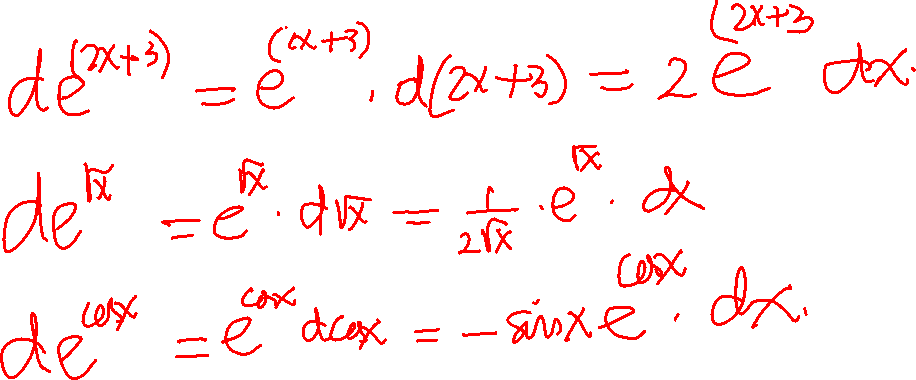 de^(2x+3) = e^(x+3) . d(2x+3) = 2e^(2x+3 dx.
de^√x = e^√x · d√x = 1/(2√x) · e^√x · dx
de^cosx = e^cosx dcosx = -sinx e^cosx · dx.